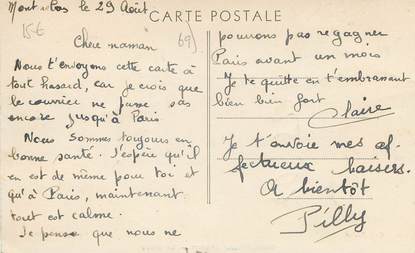 Mont de Pas le 29 Août
CARTE POSTALE
15€
69)
Chère maman
Nous t'envoyons cette carte à
tout hasard, car je crois que
le courrier ne passe pas
encore jusqu'à Paris
Nous sommes toujours en
bonne santé. J'espère qu'il
en est de même pour toi et
qu'à Paris, maintenant
tout est calme.
Je pense que nous ne
pourrons pas regagner
Paris avant un mois
Je te quitte en t'embrassant
bien bien fort
Claire
Je t'envoie mes af-
fectueux baisers.
A bientôt
Pilly